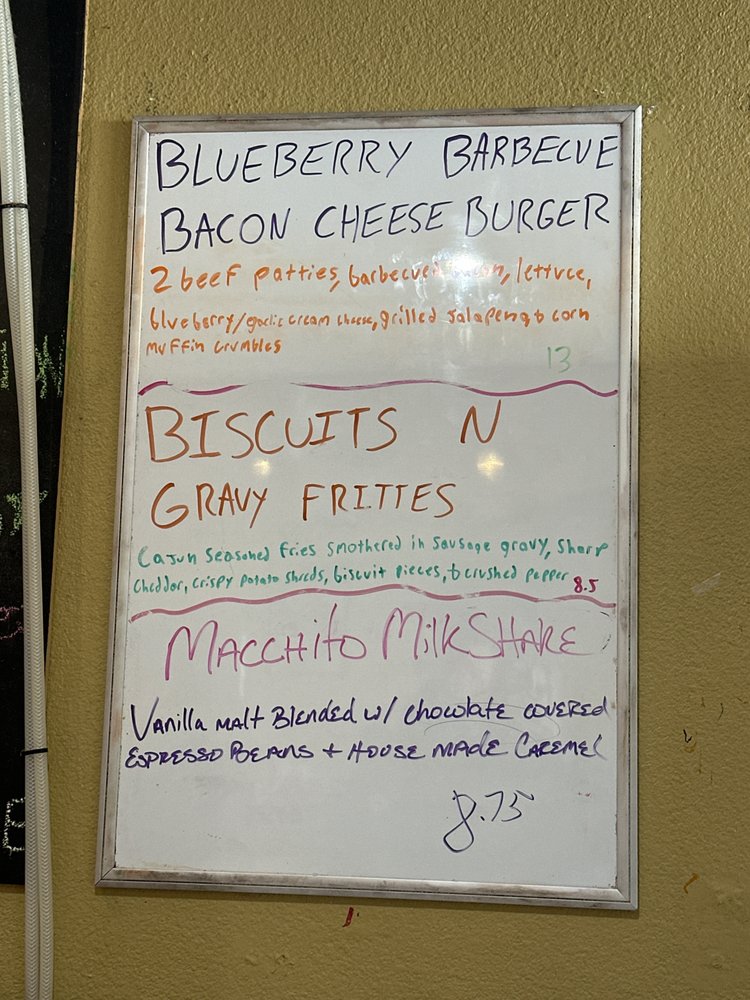 BLUEBERRY BARBECUE
BACON CHEESE BURGER
2 beef patties, barbecued bacon, lettuce,
blueberry/garlic cream cheese, grilled jalapeno, & corn
muffin crumbles
13
BISCUITS N
GRAVY FRITTES
Cajun seasoned fries smothered in sausage gravy, sharp
cheddar, crispy potato shreds, biscuit pieces, & crushed pepper 8.5
MACCHITO MILKSHAKE
Vanilla malt Blended w/ chocolate covered
ESPRESSO BEANS + HOUSE MADE CAREMEL
8.75